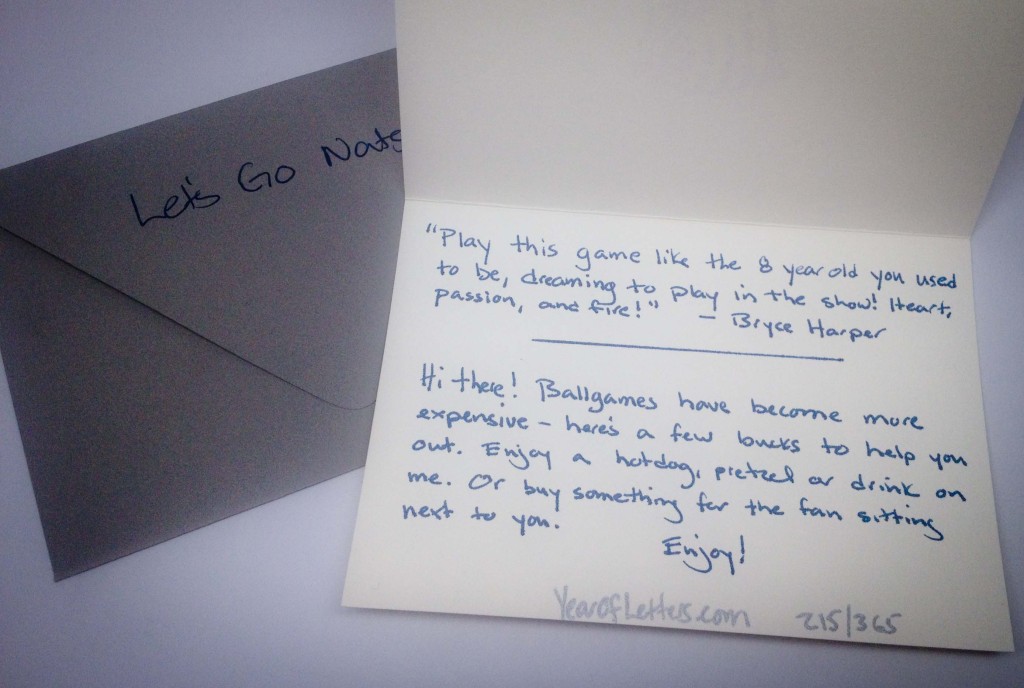 Let's Go Nats
"Play this game like the 8 year old you used
to be, dreaming to play in the show! Heart,
passion, and fire!" – Bryce Harper
Hi there! Ballgames have become more
expensive – here's a few bucks to help you
out. Enjoy a hotdog, pretzel or drink on
me. Or buy something for the fan sitting
next to you.
Enjoy!
YearofLetters.com 215/365